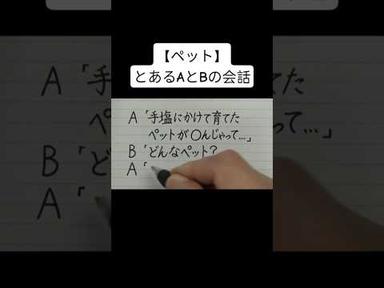 【ペット】
とあるAとBの会話
A「手塩にかけて育てた
ペットが〇んじゃって…」
B「どんなペット?
A「
A「